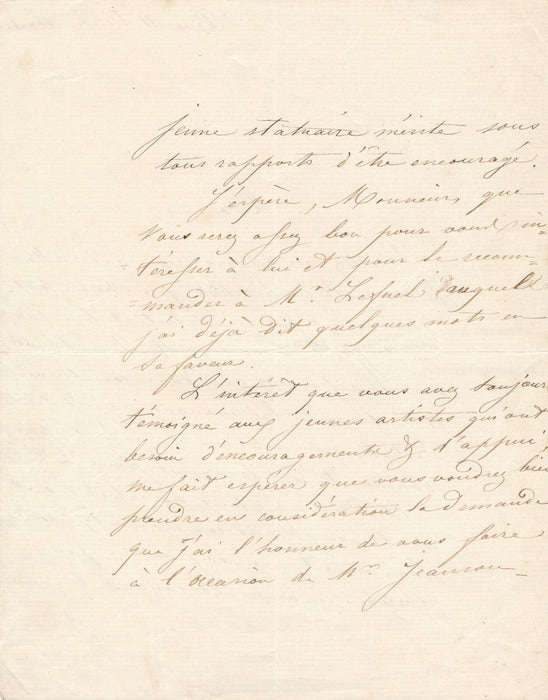 jeune statuaire mérite sous
tous rapports d'être encouragé.
J'espère, Monsieur, que
vous serez assez bon pour vous in-
=téresser à lui et pour le recom-
=mander à Mr. Lefuel auquel
j'ai déjà dit quelques mots en
sa faveur.
L'intérêt que vous avez toujours
témoigné aux jeunes artistes qui ont
besoin d'encouragements & d'appui,
me fait espérer que vous voudrez bien
prendre en considération la demande
que j'ai l'honneur de vous faire
à l'occasion de Mr. Jeanson_